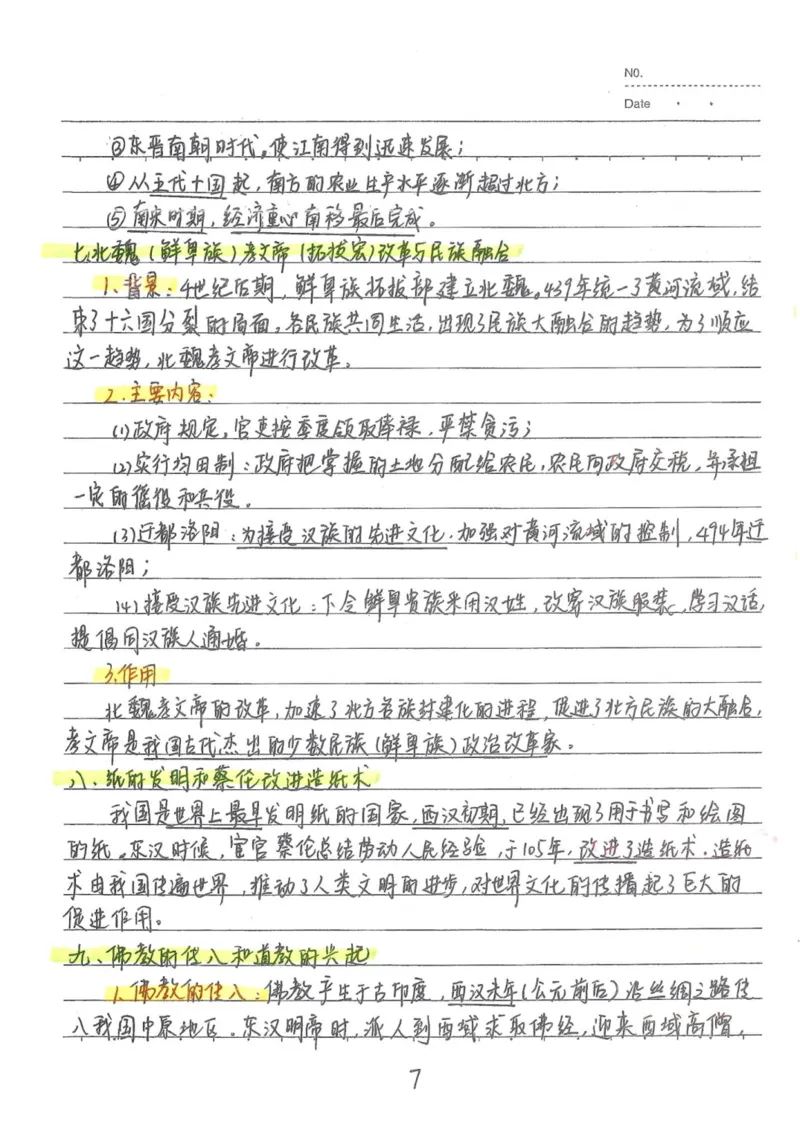 NO.
Date
③东晋南朝时代,使江南得到迅速发展;
④从五代十国起,南方的农业生产水平逐渐超过北方;
⑤南宋时期,经济重心南移最后完成。
七、北魏(鲜卑族)孝文帝(拓拔宏)改革与民族融合
1、背景:4世纪后期,鲜卑族拓拔部建立北魏。439年统一了黄河流域,结
束了十六国分裂的局面。各民族共同生活,出现了民族大融合的趋势,为了顺应
这一趋势,北魏孝文帝进行改革。
2.主要内容:
(1)政府规定,官吏按季度领取俸禄,严禁贪污;
(2)实行均田制:政府把掌握的土地分配给农民,农民向政府交税,并承担
一定的徭役和兵役。
(3)迁都洛阳:为接受汉族的先进文化,加强对黄河流域的控制,494年迁
都洛阳;
(4)接受汉族先进文化:下令鲜卑贵族采用汉姓,改穿汉族服装,学习汉话,
提倡同汉族人通婚。
3.作用
北魏孝文帝的改革,加速了北方各族封建化的进程,促进了北方民族的大融合,
孝文帝是我国古代杰出的少数民族(鲜卑族)政治改革家。
八、纸的发明和蔡伦改进造纸术
我国是世界上最早发明纸的国家,西汉初期,已经出现了用于书写和绘图
的纸。东汉时候,宦官蔡伦总结劳动人民经验,于105年,改进了造纸术。造纸
术由我国传遍世界,推动了人类文明的进步,对世界文化的传播起了巨大的
促进作用。
九、佛教的传入和道教的兴起
1.佛教的传入:佛教产生于古印度,西汉末年(公元前后)沿丝绸之路传
入我国中原地区。东汉明帝时,派人到西域求取佛经,迎来西域高僧,
7